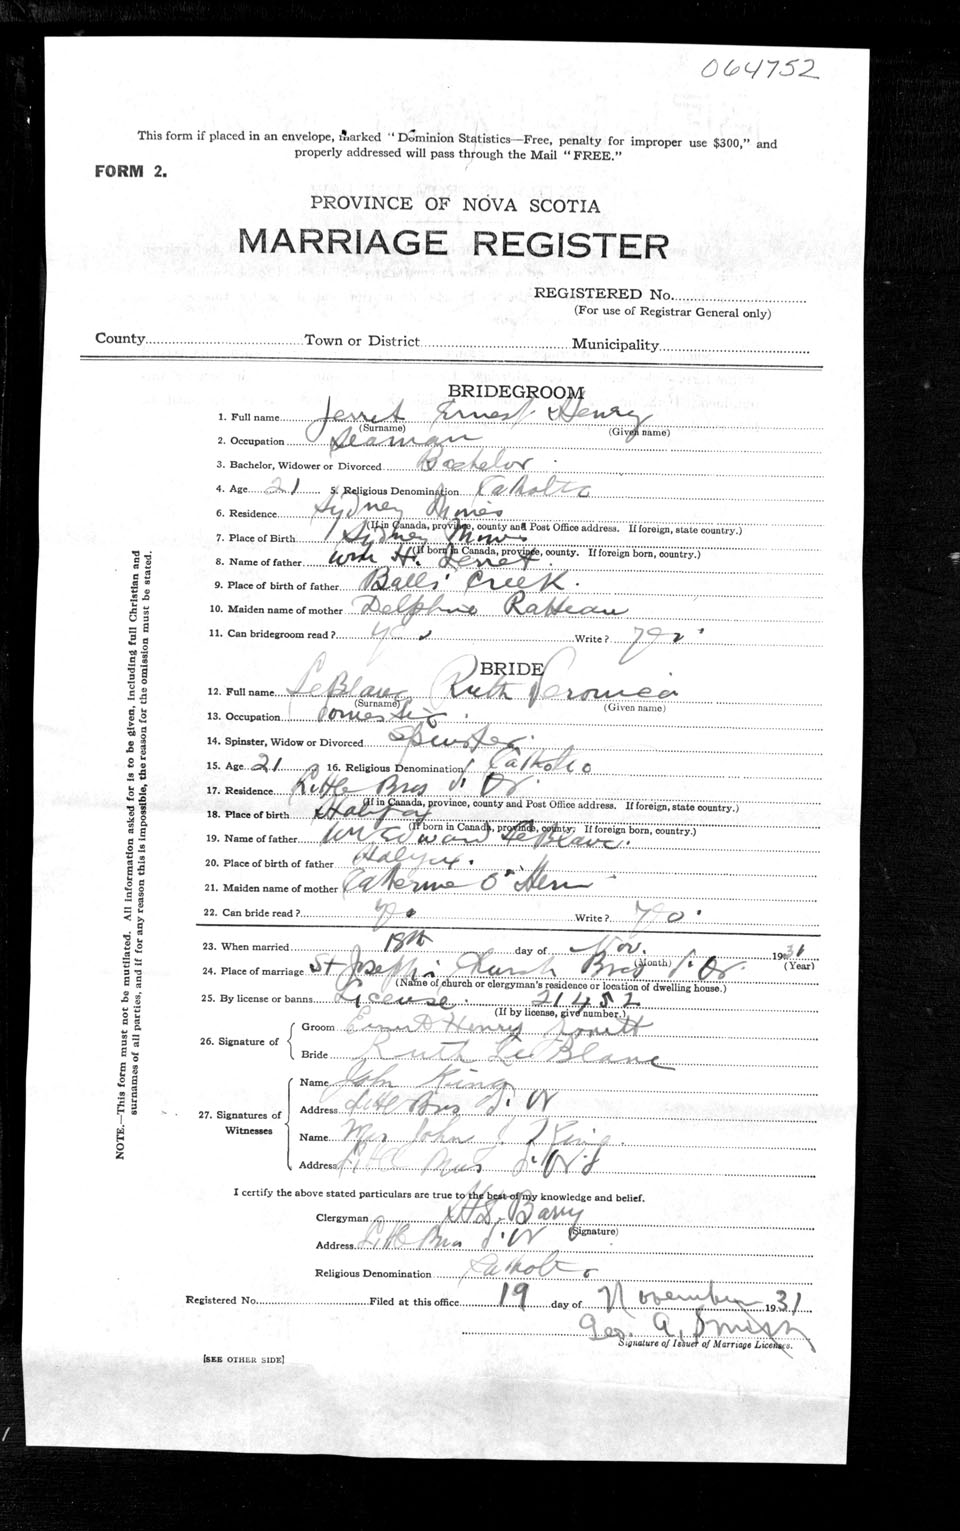 064752
This form if placed in an envelope, marked "Dominion Statistics—Free, penalty for improper use $300," and
properly addressed will pass through the Mail "FREE."
FORM 2.
PROVINCE OF NOVA SCOTIA
MARRIAGE REGISTER
REGISTERED No.
(For use of Registrar General only)
County Town or District Municipality
BRIDEGROOM
1. Full name Jerret Ernest Henry
(Surname) (Given name)
2. Occupation Seaman
3. Bachelor, Widower or Divorced Bachelor
4. Age 21 5. Religious Denomination Catholic
6. Residence Sydney Mines
(If in Canada, province, county and Post Office address. If foreign, state country.)
7. Place of Birth Sydney Mines
(If born in Canada, province, county. If foreign born, country.)
8. Name of father Wm H. Jerret.
9. Place of birth of father Balls Creek.
10. Maiden name of mother Delphine
11. Can bridegroom read? yes Write? yes
BRIDE
12. Full name LeBlanc Ruth Veronica
(Surname) (Given name)
13. Occupation Domestic
14. Spinster, Widow or Divorced Spinster
15. Age 21 16. Religious Denomination Catholic
17. Residence Little Bras d'Or
(If in Canada, province, county and Post Office address. If foreign, state country.)
18. Place of birth Halifax
(If born in Canada, province, county. If foreign born, country.)
19. Name of father Wm Edward LeBlanc.
20. Place of birth of father Halifax.
21. Maiden name of mother Catherine O'Hern
22. Can bride read? yes Write? yes
23. When married 18th day of Nov. 1931
(Month) (Year)
24. Place of marriage St Joseph's Church Bras d'Or
(Name of church or clergyman's residence or location of dwelling house.)
25. By license or banns License. 21452
(If by license, give number.)
26. Signature of
Groom Ernest Henry
Bride Ruth LeBlanc
27. Signatures of
Witnesses
Name John King
Address Little Bras d'Or
Name Mrs John King.
Address Little Bras d'Or
I certify the above stated particulars are true to the best of my knowledge and belief.
Clergyman Barry
(Signature)
Address Little Bras d'Or
Religious Denomination Catholic
Registered No. Filed at this office 19 day of November 1931
Geo. A. Smith
Signature of Issuer of Marriage Licenses.
[SEE OTHER SIDE]
NOTE.—This form must not be mutilated. All information asked for is to be given, including full Christian and
surnames of all parties, and if for any reason this is impossible, the reason for the omission must be stated.